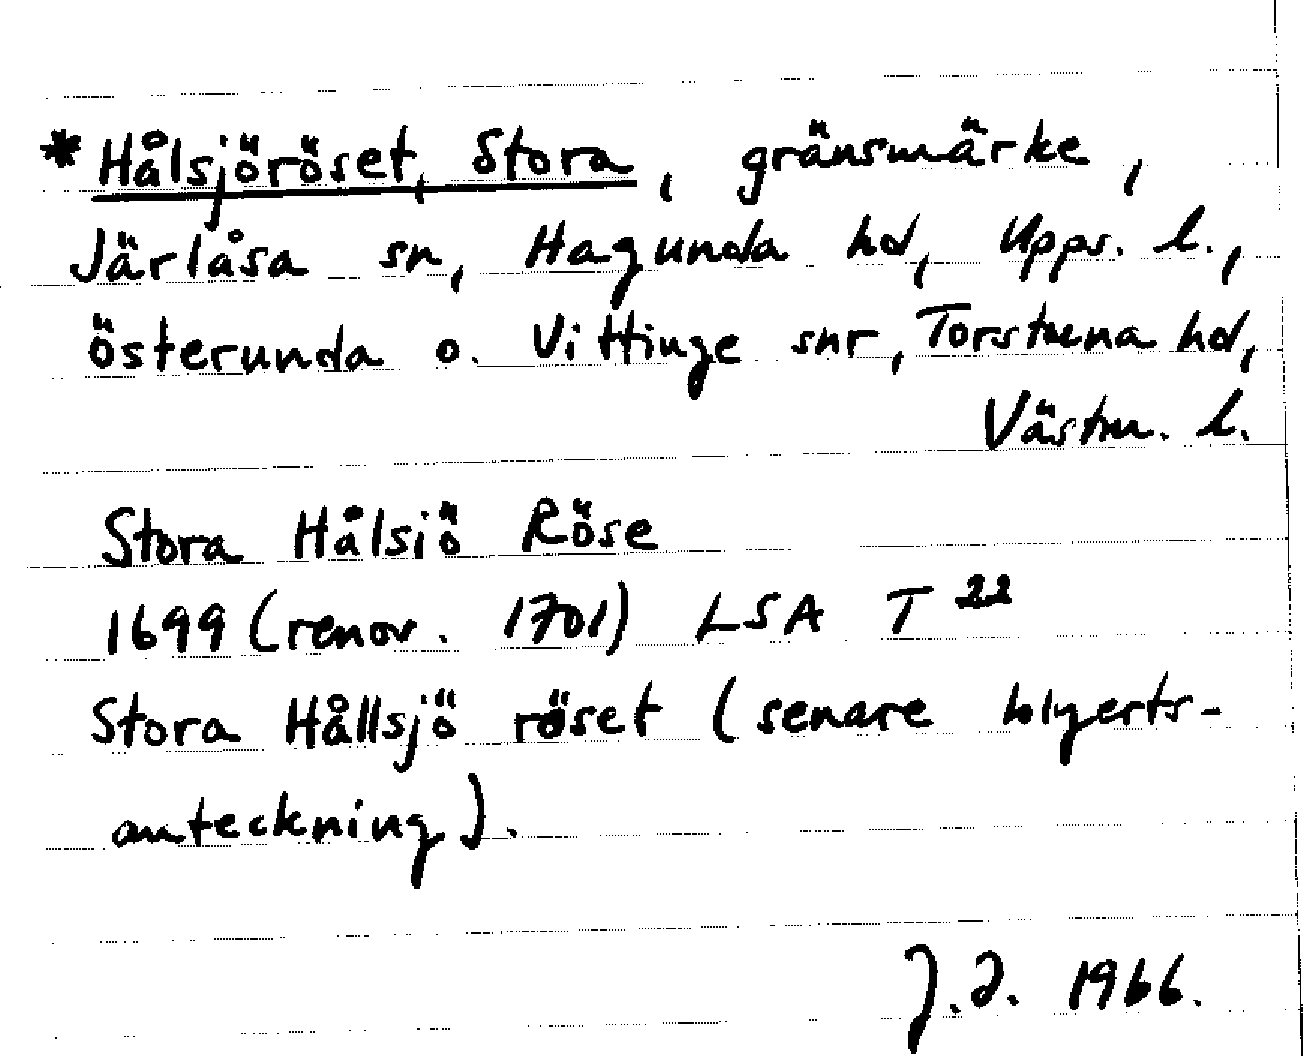 *Hålsjöröset, Stora, gränsmärke,
Järlåsa sn, Hagunda hd, Upps. l.,
Österunda o. Vittinge snr, Torstuna hd,
Västm. l.
Stora Hålsiö Röse
1699 (renov. 1701) LSA T 22
Stora Hållsjö röset (senare blyerts-
anteckning).
J.J. 1966.